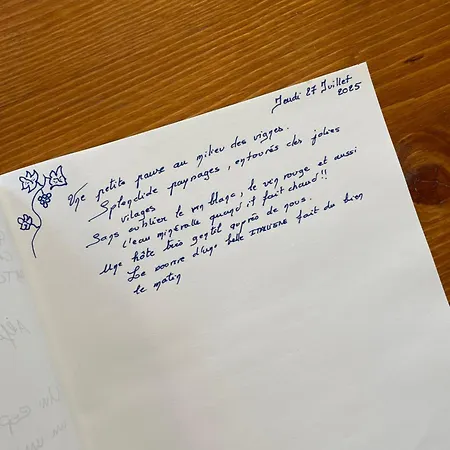 Jeudi 27 Juillet
2025
Une petite pause au milieu des vignes.
Splendide paysages, entourés des jolies
vilages
Sans oublier le vin blanc, le vin rouge et aussi
l'eau minérale quand il fait chaud!!
Une hôte très gentil auprès de nous.
Le sourire d'une belle ITALIENE fait du bien
le matin